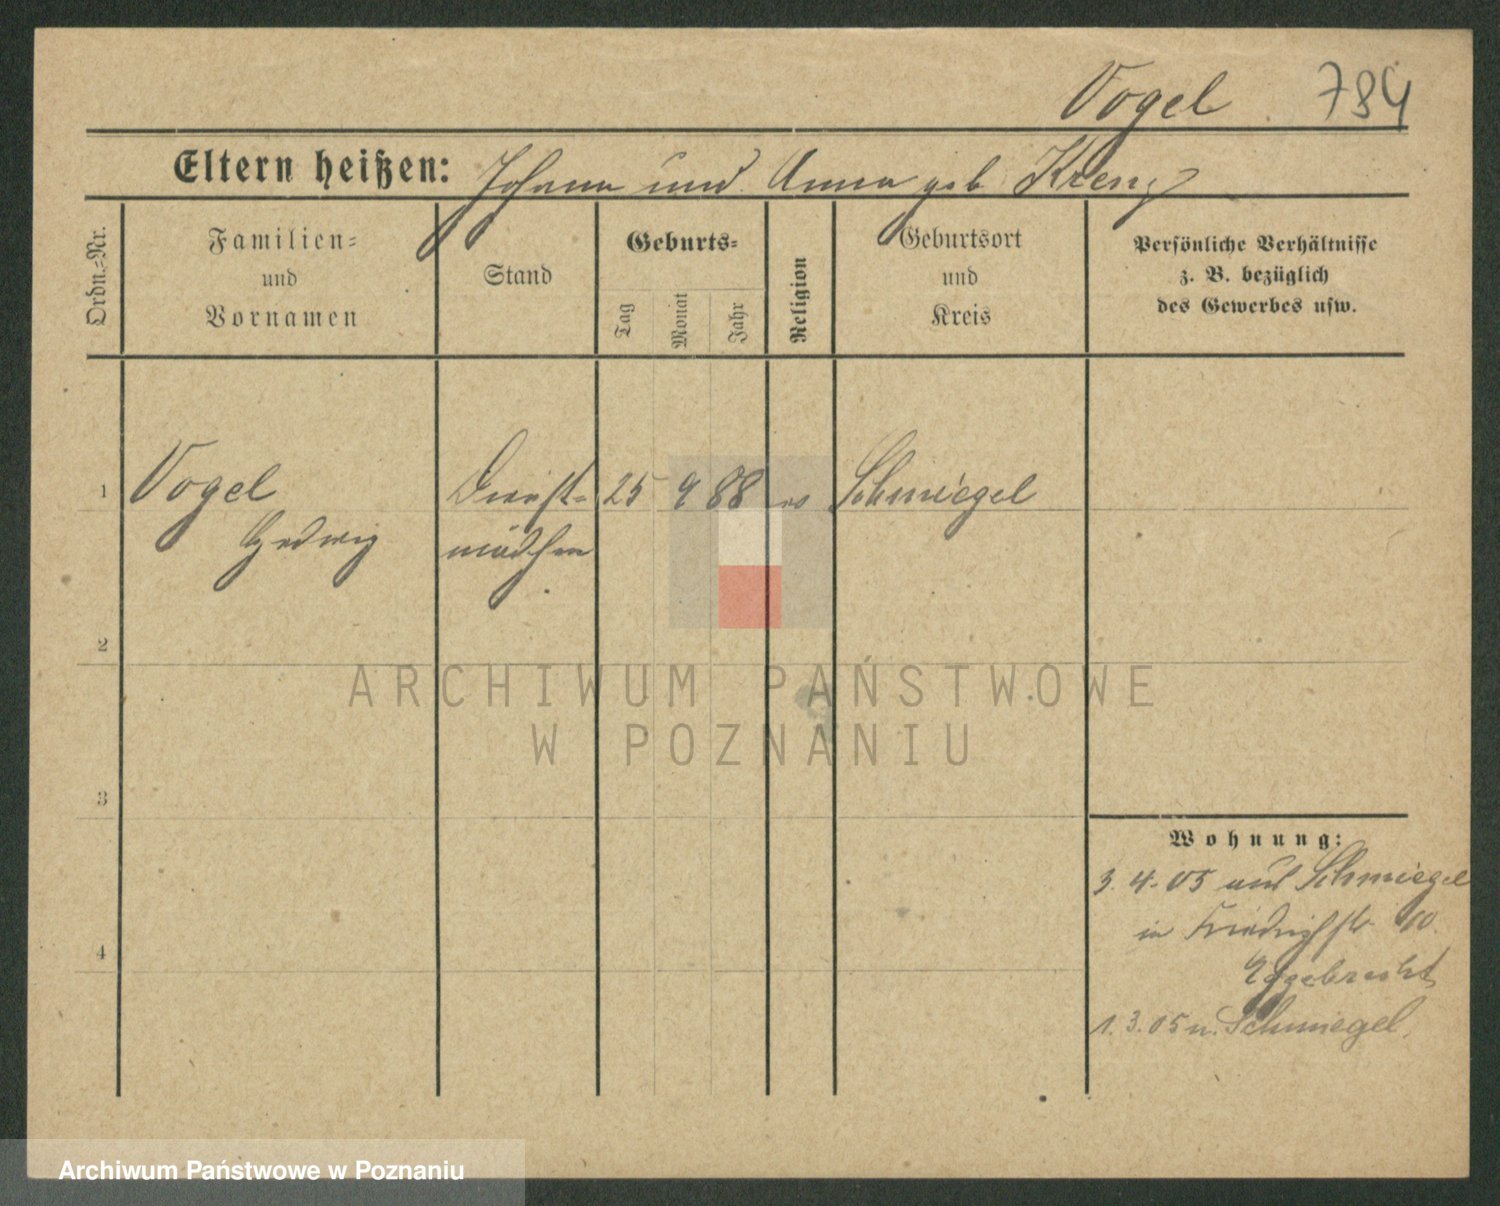 Vogel
784
Eltern heißen: Johann und Anna geb Krenz
Ordn.-Nr.
Familien-
und
Vornamen
Stand
Geburts-
Tag
Monat
Jahr
Religion
Geburtsort
und
Kreis
Persönliche Verhältnisse
z. B. bezüglich
des Gewerbes usw.
1 Vogel Dienst- 25 9 88 ev Schmiegel
Hedwig mädchen
2
3
4
Wohnung:
3. 4. 05 aus Schmiegel
in Friedrichstr 10
Eggebrecht
1. 3. 05 n. Schmiegel.
ARCHIWUM PAŃSTWOWE
W POZNANIU
Archiwum Państwowe w Poznaniu